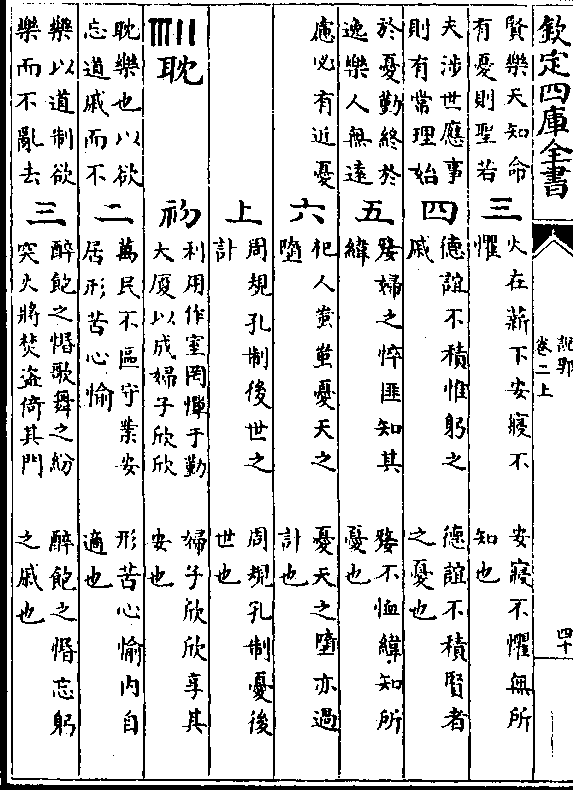 欽定四庫全書
說郛
卷二上
四十
賢樂天知命
有憂則聖若
三
火在薪下安寢不
懼
安寢不懼無所
知也
夫涉世應事
則有常理始
四
德誼不積惟躬之
戚
德誼不積賢者
之憂也
於憂勤終於
逸樂人無遠
五
嫠婦之悴匪知其
緯
嫠不恤緯知所
憂也
慮必有近憂
六
杞人蚩蚩憂天之
墮
憂天之墮亦過
計也
上
周規孔制後世之
計
周規孔制憂後
世也
耽
初
利用作室罔憚于勤
大厦以成婦子欣欣
婦子欣欣享其
安也
耽樂也以欲
忘道戚而不
二
萬民不區守業安
居形苦心愉
形苦心愉内自
適也
樂以道制欲
樂而不亂去
三
醉飽之惛歌舞之紛
突火將焚盗倚其門
醉飽之惛忘躬
之戚也